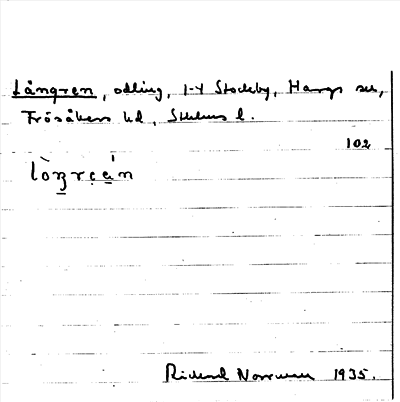 Långren, odling, 1-4 Stockby, Hargs sn,
Frösåkers hd, Sthlms l.
102
lòŋrẹén
Rickard Norrman 1935.